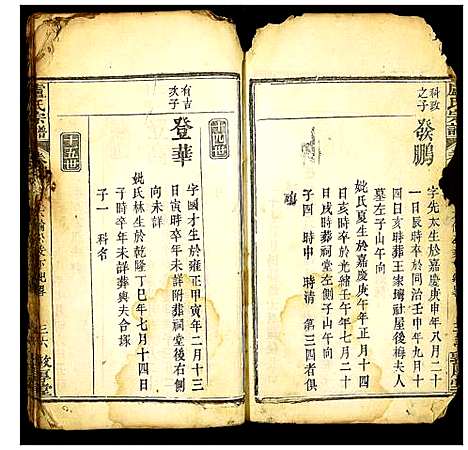 科政
之子
發鵬
字先太生於嘉慶庚申年八月二十
一日辰時卒於同治壬申年九月十
四日亥時葬王家塆社屋後梅夫人
墓左子山午向
妣氏夏生於嘉慶庚午年正月十四
日亥時卒於光緒壬午年七月二十
日戌時葬祠堂左側子山午向
子四 時中 時清 第三四者俱
殤
十四世
有吉
次子
登華
字國才生於雍正甲寅年二月十三
日寅時卒年未詳附葬祠堂後右側
向未詳
妣氏林生於乾隆丁巳年七月十四日
子時卒年未詳葬與夫合塚
子一 科名
十五世
盧氏宗譜
三六 敦厚堂